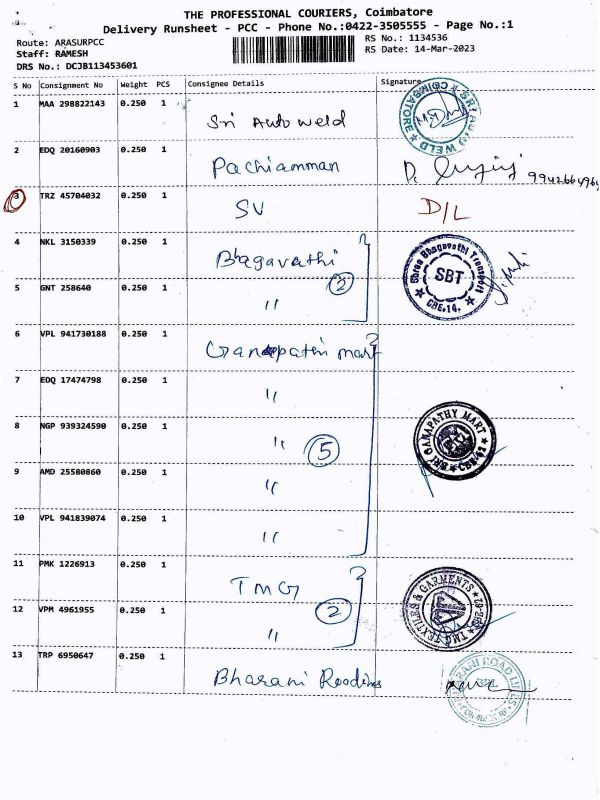 THE PROFESSIONAL COURIERS, Coimbatore
Delivery Runsheet - PCC - Phone No.:0422-3505555 - Page No.:1
Route: ARASURPCC
Staff: RAMESH
DRS No.: DCJB113453601
RS No.: 1134536
RS Date: 14-Mar-2023
S No Consignment No Weight PCS Consignee Details Signature
1 MAA 298822143 0.250 1 Sri Auto Weld SRI AUTO WELD COIMBATORE
2 EDQ 20160903 0.250 1 Pachiamman
3 TRZ 45704032 0.250 1 SV D/L
4 NKL 3150339 0.250 1 Bhagavathi
5 GNT 258640 0.250 1 " 2 Shree Bhagavathi Transport SBT CBE.14.
6 VPL 941730188 0.250 1 Ganapathi mart
7 EDQ 17474798 0.250 1 "
8 NGP 939324590 0.250 1 " 5 SRI GANAPATHY MART
9 AMD 25580860 0.250 1 "
10 VPL 941839074 0.250 1 "
11 PMK 1226913 0.250 1 TMG
12 VPM 4961955 0.250 1 " 2 TMG TEXTILES & GARMENTS
13 TRP 6950647 0.250 1 Bharani Roadlines